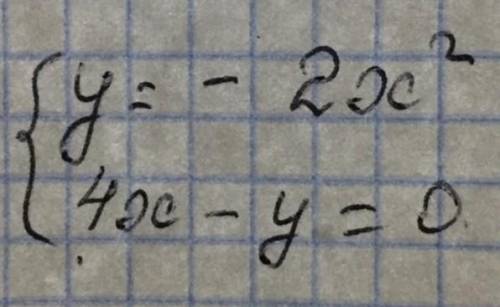 y = - 2x²
4x - y = 0